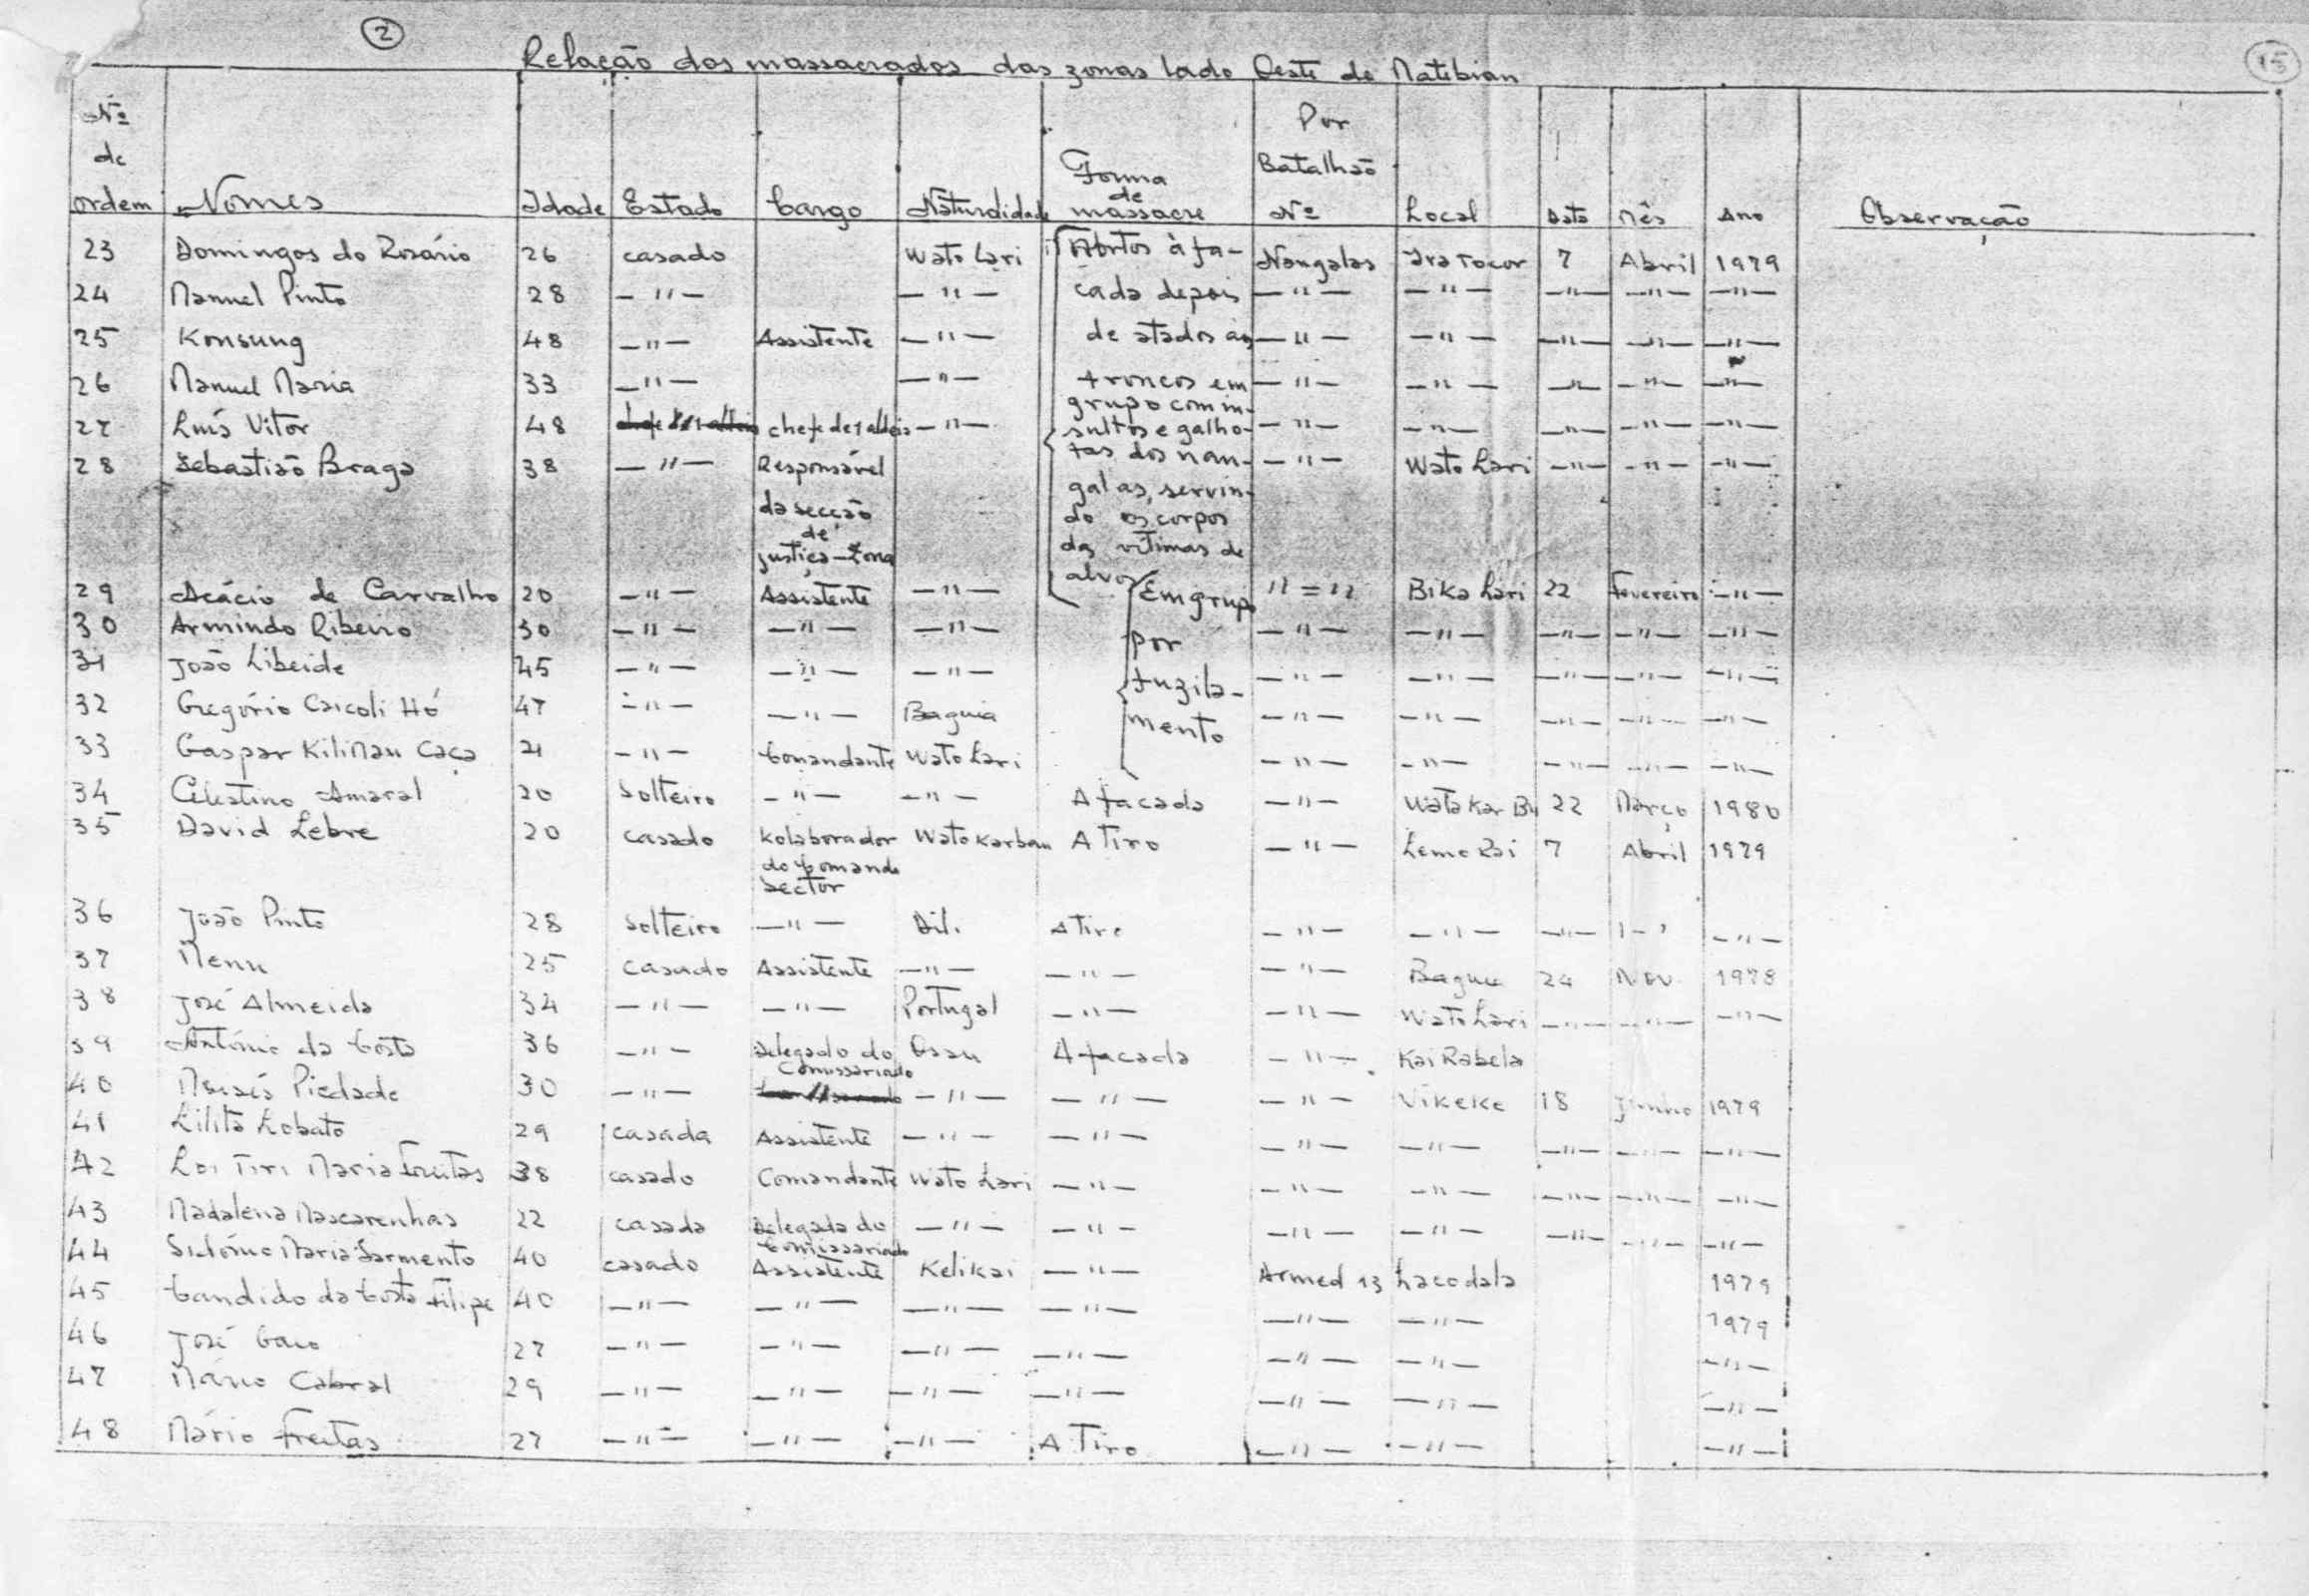 2
15
Relação dos massacrados das zonas lado Oeste de Matebian
Nº de ordem Nomes Idade Estado Cargo Naturalidade Forma de massacre Por Batalhão Nº Local Data Mês Ano Observação
23 Domingos do Rosário 26 casado Wato Lari Mortos à fa- Nangalas Ira Tocor 7 Abril 1979
24 Manuel Pinto 28 —"— —"— cada depois —"— —"— —"— —"— —"—
25 Konsung 48 —"— Assistente —"— de atados aos —"— —"— —"— —"— —"—
26 Manuel Maria 33 —"— —"— troncos em —"— —"— —"— —"— —"—
grupo com in-
27 Luís Vitor 48 chefe de 1 aldeia —"— sultos e galho- —"— —"— —"— —"— —"—
28 Sebastião Braga 38 —"— Responsável tas dos nan- —"— Wato Lari —"— —"— —"—
galas, servin-
da secção do os corpos
de
justiça – Zona das vítimas de
alvos
29 Acácio de Carvalho 20 —"— Assistente —"— Em grupo "=" Bika Lari 22 Fevereiro —"—
30 Armindo Ribeiro 30 —"— —"— —"— por —"— —"— —"— —"— —"—
31 João Libeide 45 —"— —"— —"— fuzila- —"— —"— —"— —"— —"—
32 Gregório Caicoli Hó 47 —"— —"— Baguia mento —"— —"— —"— —"— —"—
33 Gaspar KiliMau Caça 21 —"— Comandante Wato Lari —"— —"— —"— —"— —"—
34 Celestino Amaral 20 Solteiro —"— —"— A facada —"— Wata Kar Bu 22 Março 1980
35 David Lebre 20 casado Kolaborador Wato Karbau A Tiro —"— Lemo Rai 7 Abril 1979
do Comando
Sector
36 João Pinto 28 Solteiro —"— Dili A Tiro —"— —"— —"— —"— —"—
37 Menu 25 casado Assistente —"— —"— —"— 24 Nov 1978
38 José Almeida 34 —"— —"— Portugal —"— —"— Wato Lari —"— —"— —"—
39 António da Costa 36 —"— Delegado do Ossu A facada —"— Kai Rabela
Comissariado
40 Moisés Piedade 30 —"— —"— —"— —"— Vikeke 18 Junho 1979
41 Lilita Lobato 29 casada Assistente —"— —"— —"— —"— —"— —"— —"—
42 Loi Tiri Maria Freitas 38 casado Comandante Wato Lari —"— —"— —"— —"— —"— —"—
43 Madalena Mascarenhas 22 casada Delegada do —"— —"— —"— —"— —"— —"— —"—
Comissariado
44 Maria Sarmento 40 casado Assistente Kelikai —"— Armed 13 Lacodala 1979
45 Candido da Costa Filipe 40 —"— —"— —"— —"— —"— —"— 1979
46 José 27 —"— —"— —"— —"— —"— —"— —"—
47 Mário Cabral 29 —"— —"— —"— —"— —"— —"— —"—
48 Mário Freitas 27 —"— —"— —"— A Tiro —"— —"— —"—